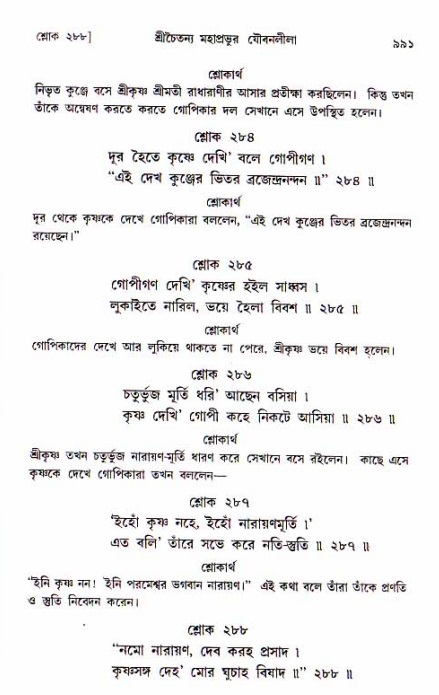 শ্লোক ২৮৮] শ্রীচৈতন্য মহাপ্রভুর যৌবনলীলা ৯৯১
শ্লোকার্থ
নিভৃত কুঞ্জে বসে শ্রীকৃষ্ণ শ্রীমতী রাধারাণীর আসার প্রতীক্ষা করছিলেন। কিন্তু তখন
তাঁকে অন্বেষণ করতে করতে গোপিকার দল সেখানে এসে উপস্থিত হলেন।
শ্লোক ২৮৪
দূর হৈতে কৃষ্ণে দেখি’ বলে গোপীগণ ।
“এই দেখ কুঞ্জের ভিতর ব্রজেন্দ্রনন্দন ॥” ২৮৪ ॥
শ্লোকার্থ
দূর থেকে কৃষ্ণকে দেখে গোপিকারা বললেন, “এই দেখ কুঞ্জের ভিতর ব্রজেন্দ্রনন্দন
রয়েছেন।”
শ্লোক ২৮৫
গোপীগণ দেখি’ কৃষ্ণের হইল সাধ্বস ।
লুকাইতে নারিল, ভয়ে হৈলা বিবশ ॥ ২৮৫ ॥
শ্লোকার্থ
গোপিকাদের দেখে আর লুকিয়ে থাকতে না পেরে, শ্রীকৃষ্ণ ভয়ে বিবশ হলেন।
শ্লোক ২৮৬
চতুর্ভুজ মূর্তি ধরি’ আছেন বসিয়া ।
কৃষ্ণ দেখি’ গোপী কহে নিকটে আসিয়া ॥ ২৮৬ ॥
শ্লোকার্থ
শ্রীকৃষ্ণ তখন চতুর্ভুজ নারায়ণ-মূর্তি ধারণ করে সেখানে বসে রইলেন। কাছে এসে
কৃষ্ণকে দেখে গোপিকারা তখন বললেন—
শ্লোক ২৮৭
‘ইহোঁ কৃষ্ণ নহে, ইহোঁ নারায়ণমূর্তি ।’
এত বলি’ তাঁরে সভে করে নতি-স্তুতি ॥ ২৮৭ ॥
শ্লোকার্থ
“ইনি কৃষ্ণ নন! ইনি পরমেশ্বর ভগবান নারায়ণ।” এই কথা বলে তাঁরা তাঁকে প্রণতি
ও স্তুতি নিবেদন করেন।
শ্লোক ২৮৮
“নমো নারায়ণ, দেব করহ প্রসাদ ।
কৃষ্ণসঙ্গ দেহ’ মোর ঘুচাহ বিষাদ ॥” ২৮৮ ॥